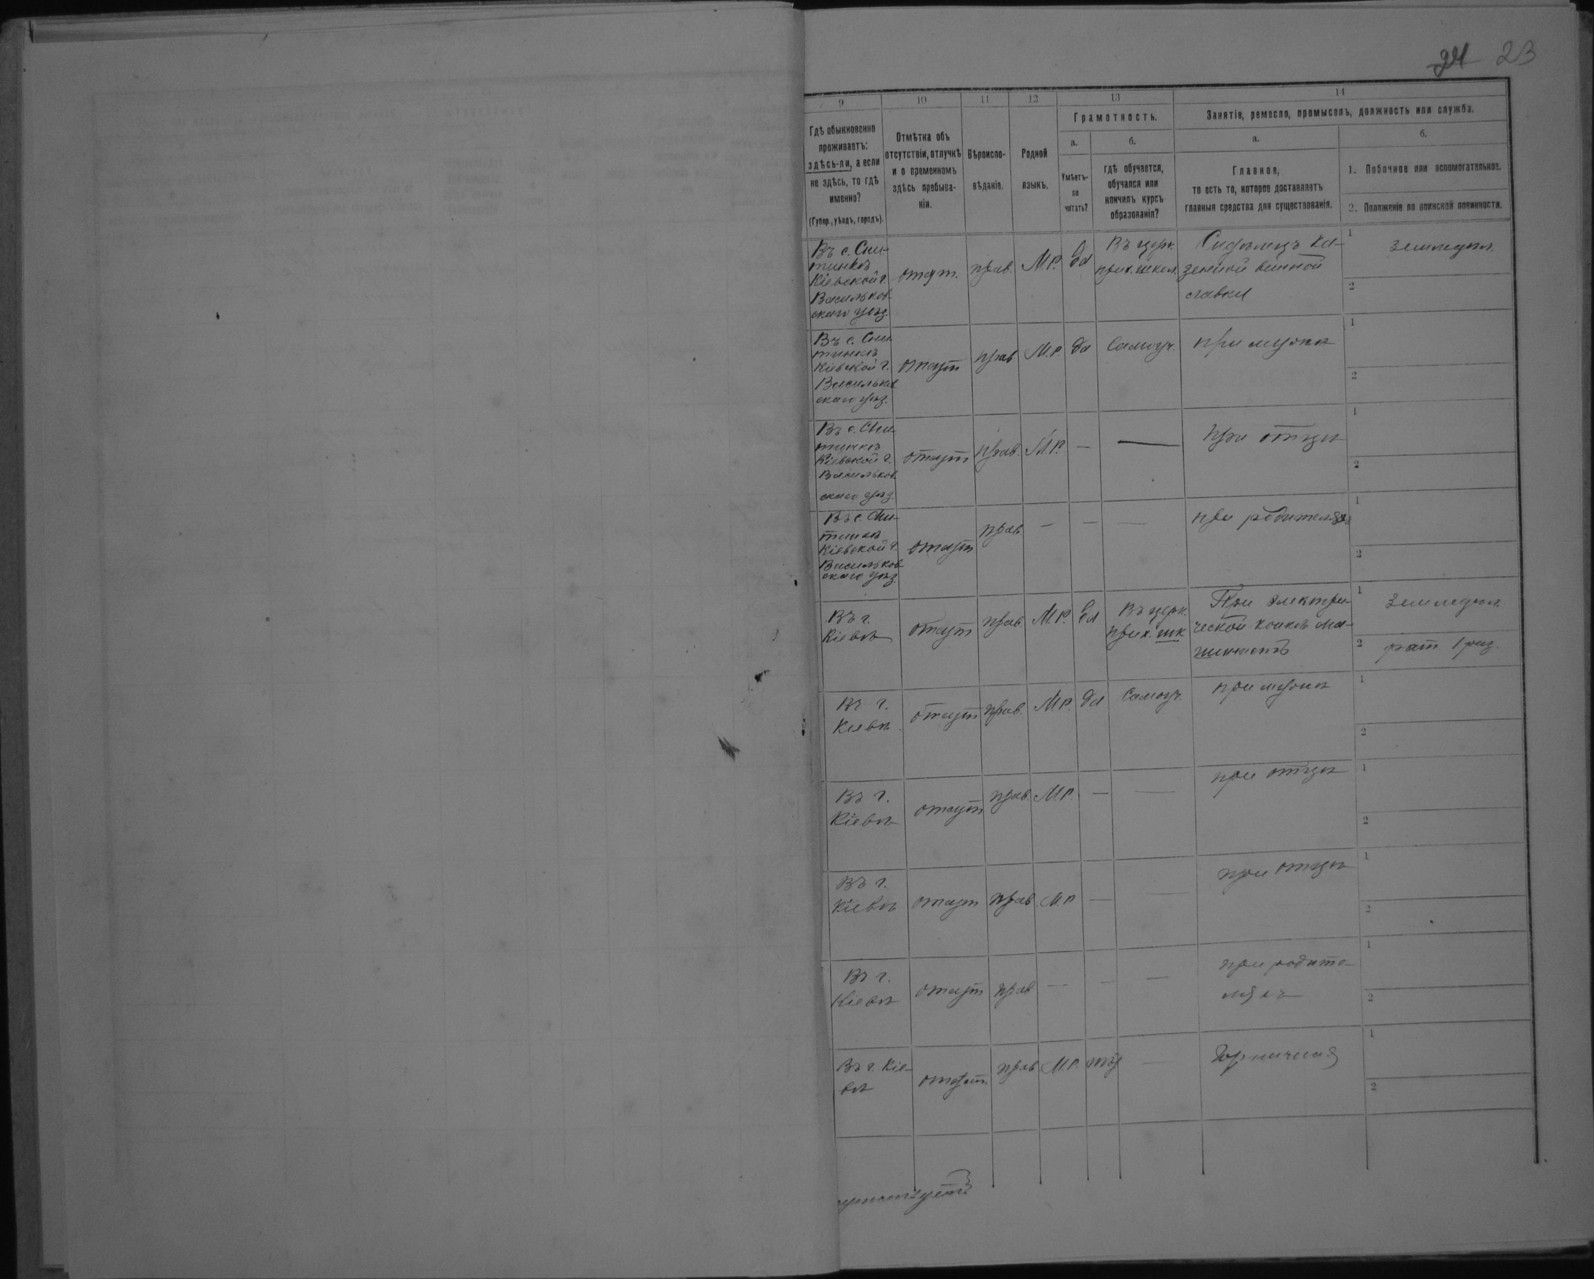 24 23
9 10 11 12 13 14
Грамотность.
Занятіе, ремесло, промыселъ, должность или служба.
Гдѣ обыкновенно
проживаетъ:
здѣсь-ли, а если
не здѣсь, то гдѣ
именно?
(Губер., уѣздъ, городъ).
Отмѣтка объ
отсутствіи, отлучкѣ
и о временномъ
здѣсь пребыва-
ніи.
Вѣроиспо-
вѣданіе.
Родной
языкъ.
а.
Умѣетъ-
ли
читать?
б.
гдѣ обучается,
обучался или
кончилъ курсъ
образованія?
а.
Главное,
то есть то, которое доставляетъ
главныя средства для существованія.
б.
1. Побочное или вспомогательное.
2. Положеніе по воинской повинности.
Въ с. Сни-
тинкѣ
Кіевской г.
Васильков
скаго уѣзд.
отсут.
прав.
М.Р.
да
Въ церк.
прих. школ.
Сидѣлецъ ка-
зенной винной
лавки
1 земледѣл.
2
Въ с. Сни
тинкѣ
Кіевской г.
Васильков
скаго уѣзд.
отсут
прав
М.Р.
да
Самоуч.
при мужѣ
1
2
Въ с. Сни
тинкѣ
Кіевской г.
Васильков
скаго уѣзд.
отсут
прав.
М.Р.
—
—
при отцѣ
1
2
Въ с. Сни
тинкѣ
Кіевской г.
Васильков
скаго уѣзд
отсут
прав
—
—
—
при родителяхъ
1
2
Въ г.
Кіевѣ
отсут
прав
М.Р.
да
Въ церк.
прих. шк
При электри
ческой конкѣ ма-
шинистъ
1 земледѣл
2 рат. 1 раз.
Въ г.
Кіевѣ
отсут
прав.
М.Р.
да
Самоуч.
при мужѣ
1
2
Въ г.
Кіевѣ
отсут
прав
М.Р.
—
—
при отцѣ
1
2
Въ г.
Кіевѣ
отсут
прав
М.Р
—
—
при отцѣ
1
2
Въ г.
Кіевѣ
отсут
прав
—
—
—
при родите-
ляхъ
1
2
Въ г. Кіе-
вѣ
отсут.
прав
М.Р.
нѣт
—
Горничная
1
2